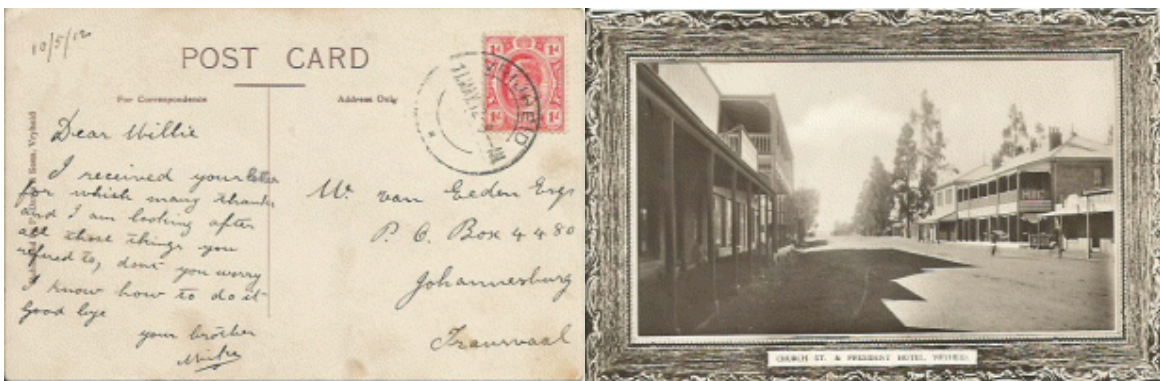 10/5/12
POST CARD
For Correspondence
Address Only
1d
1d
1d
1d
VRIJHEID
11 MAY 12
Dear Willie
I received your letter
for which many thanks
and I am looking after
all those things you
refered to, dont you worry
I know how to do it
Good bye
your brother
Mike
W. van Eeden Esqs
P. O. Box 4480
Johannesburg
Transvaal
Sons, Vryheid
CHURCH ST. & PRESIDENT HOTEL, VRYHEID.